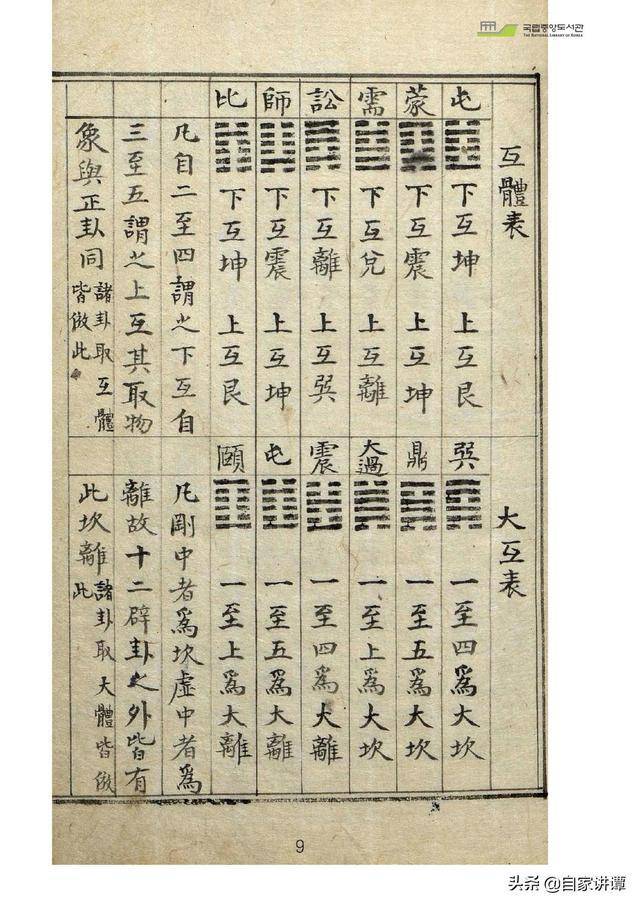 국립중앙도서관
THE NATIONAL LIBRARY OF KOREA
互體表
屯 下互坤 上互艮
蒙 下互震 上互坤
需 下互兌 上互離
訟 下互離 上互巽
師 下互震 上互坤
比 下互坤 上互艮
凡自二至四謂之下互自
三至五謂之上互其取物
象與正卦同諸卦取互體皆倣此
大互表
巽 一至四爲大坎
鼎 一至五爲大坎
大過 一至上爲大坎
震 一至四爲大離
屯 一至五爲大離
頤 一至上爲大離
凡剛中者爲坎虛中者爲
離故十二辟卦之外皆有
此坎離諸卦取大體皆倣此
9
头条 @自家讲谭